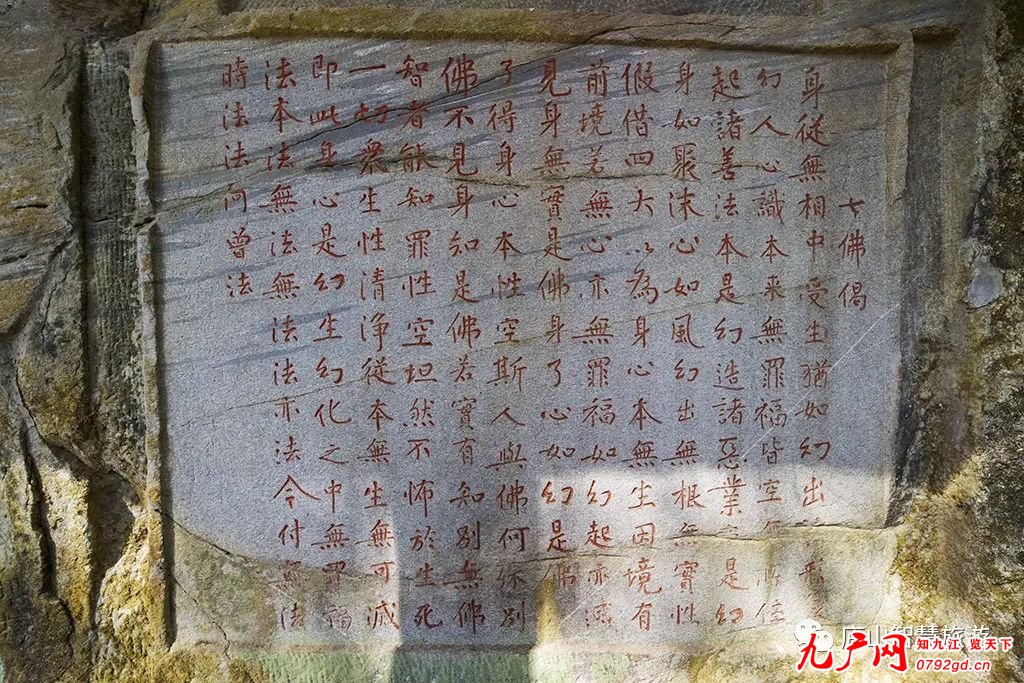 七佛偈
身從無相中受生猶如幻出形
幻人心識本来無罪福皆空無所住
起諸善法本是幻造諸惡業是幻
身如聚沫心如風幻出無根無實性
假借四大以為身心本無生因境有
前境若無心亦無罪福如幻起亦滅
見身無實是佛身了心如幻是佛
了得身心本性空斯人與佛何殊別
佛不見身知是佛若實有知別無佛
智者能知罪性空坦然不怖於生死
一切衆生性清淨從本無生無可滅
即此身心是幻生幻化之中無罪福
法本法無法無法法亦法今付無法
時法法何曾法
庐山智慧旅游
九户网 知九江 览天下
0792gd.cn